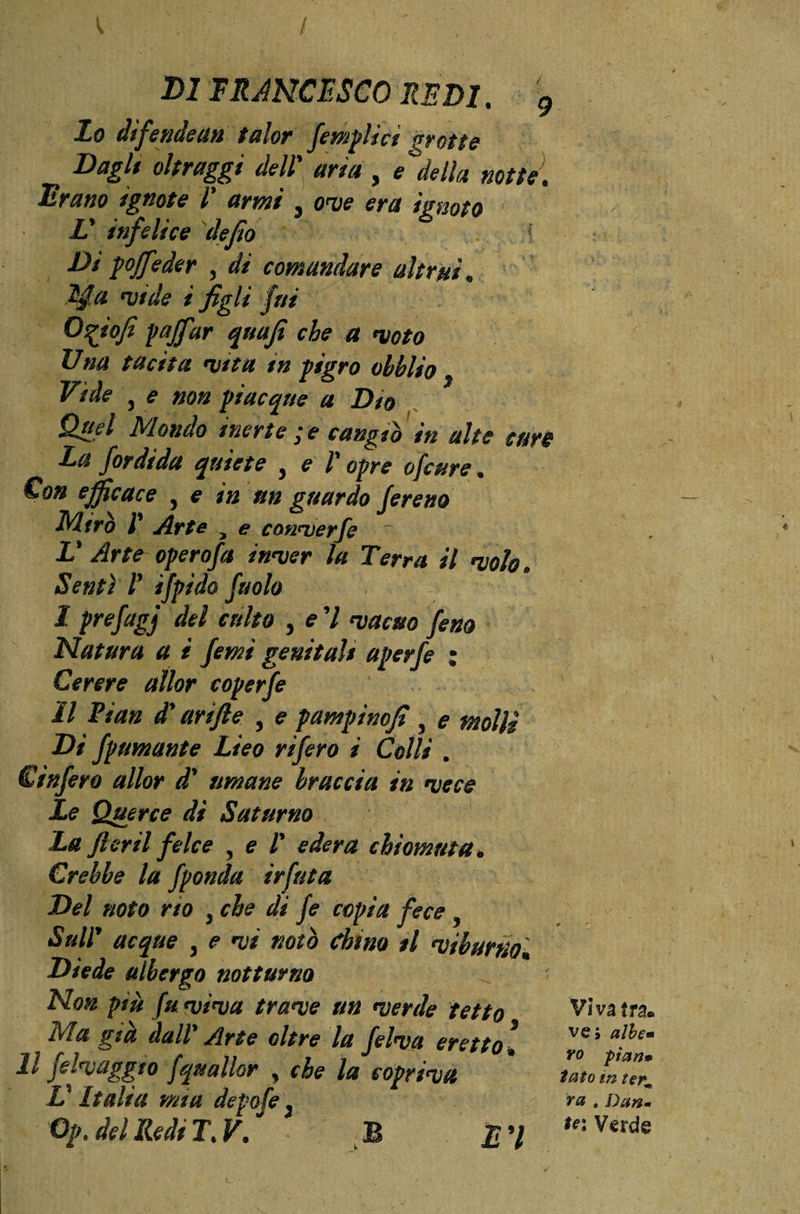 DI FRANCESCO REDI. 9
Lo difendean talor ſemplici grotte
Dagli oltraggi dell' aria , e della notte.
Erano ignote l' armi , ove era ignoto
L' infelice deſio
Di poſſeder , di comandare altrui.
Ma vide i figli ſui
Oziоſi paſſar quaſi che a voto
Una tacita vita in pigro obblio ,
Vide , e non piacque a Dio
Quel Mondo inerte ; e cangiò in alte cure
La ſordida quiete , e l' opre oſcure.
Con efficace , e in un guardo ſereno
Mirò l' Arte , e converſe
L' Arte operoſa inver la Terra il volo.
Sentì l' iſpido ſuolo
I preſagj del culto , e 'l vacuo ſeno
Natura a i ſemi genitali aperſe :
Cerere allor coperſe
Il Pian d' ariſte , e pampinoſi , e molli
Di ſpumante Lieo riſero i Colli .
Cinſero allor d' umane braccia in vece
Le Querce di Saturno
La ſteril felce , e l' edera chiomuta.
Crebbe la ſponda irſuta
Del noto rio , che di ſe copia fece ,
Sull' acque , e vi notò chino il viburno.
Diede albergo notturno
Non più fu viva trave un verde tetto
Ma già dall' Arte oltre la ſelva eretto.
Il ſelvaggio ſquallor , che la copriva
L' Italia mia depoſe ,
Op. del Redi T. V. B E 'l
Viva tra-
ve ; albe-
ro pian-
tato in ter-
ra . Dan-
te: Verde